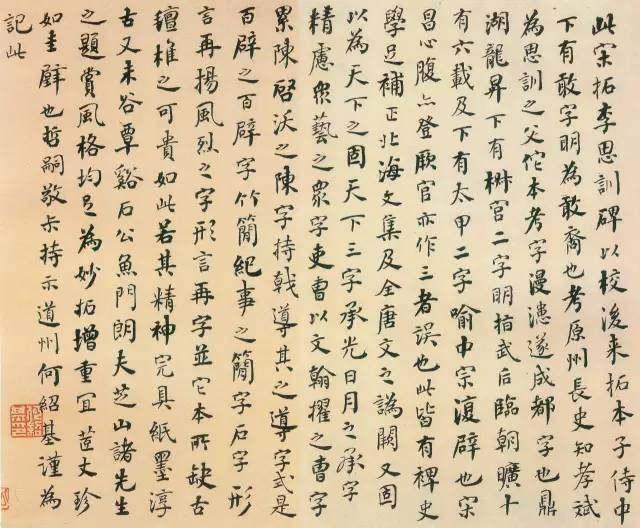 此宋拓李思訓碑以校後来拓本子侍中
下有敢字明為敢裔也考原州長史知孝斌
為思訓之父佗本考字漫漶遂成都字也鼎
湖龍昇下有栁宫二字明指武后臨朝曠十
有六載及下有太甲二字喻中宗復辟也宋
昌心腹六登厥官亦作三者誤也此皆有裨史
學足補正北海文集及全唐文之譌闕又固
以為天下之固天下三字承光日月之承字
精慮眾藝之眾字吏曹以文翰擢之曹字
累陳啓沃之陳字持戟導其之導字式是
百辟之百辟字竹簡紀事之簡字石字形
言再揚風烈之字形言再字並它本所缺古
氊椎之可貴如此若其精神完具紙墨淳
古又未谷覃谿石公魚門朗夫芝山諸先生
之題賞風格均足為妙拓增重冝茝丈珍
如圭璧也哲嗣敬持示道州何紹基謹為
記此